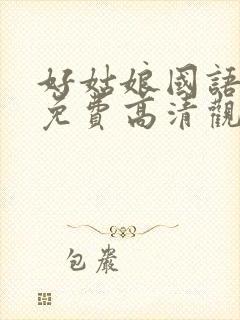 好姑娘國語
免費高清觀
包嚴